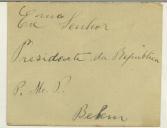 Exmo Senhor
Presidente da República
P. M. P.
Belem